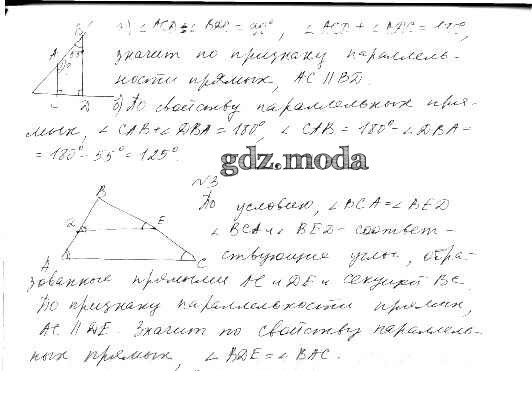 а) ∠ACD = ∠BDC = 90°, ∠ACD + ∠BDC = 180°,
значит по признаку параллель-
ности прямых, AC || BD.
б) По свойству параллельных пря-
мых, ∠CAB + ∠DBA = 180°, ∠CAB = 180° - ∠DBA =
= 180° - 55° = 125°.
gdz.moda
№3
По условию, ∠BCA = ∠BED
∠BCA и ∠BED - соответ-
ствующие углы, обра-
зованные прямыми AC и DE и секущей BC.
По признаку параллельности прямых,
AC || DE. Значит по свойству параллель-
ных прямых, ∠BDE = ∠BAC.
A
55°
C
D
B
E
A
C